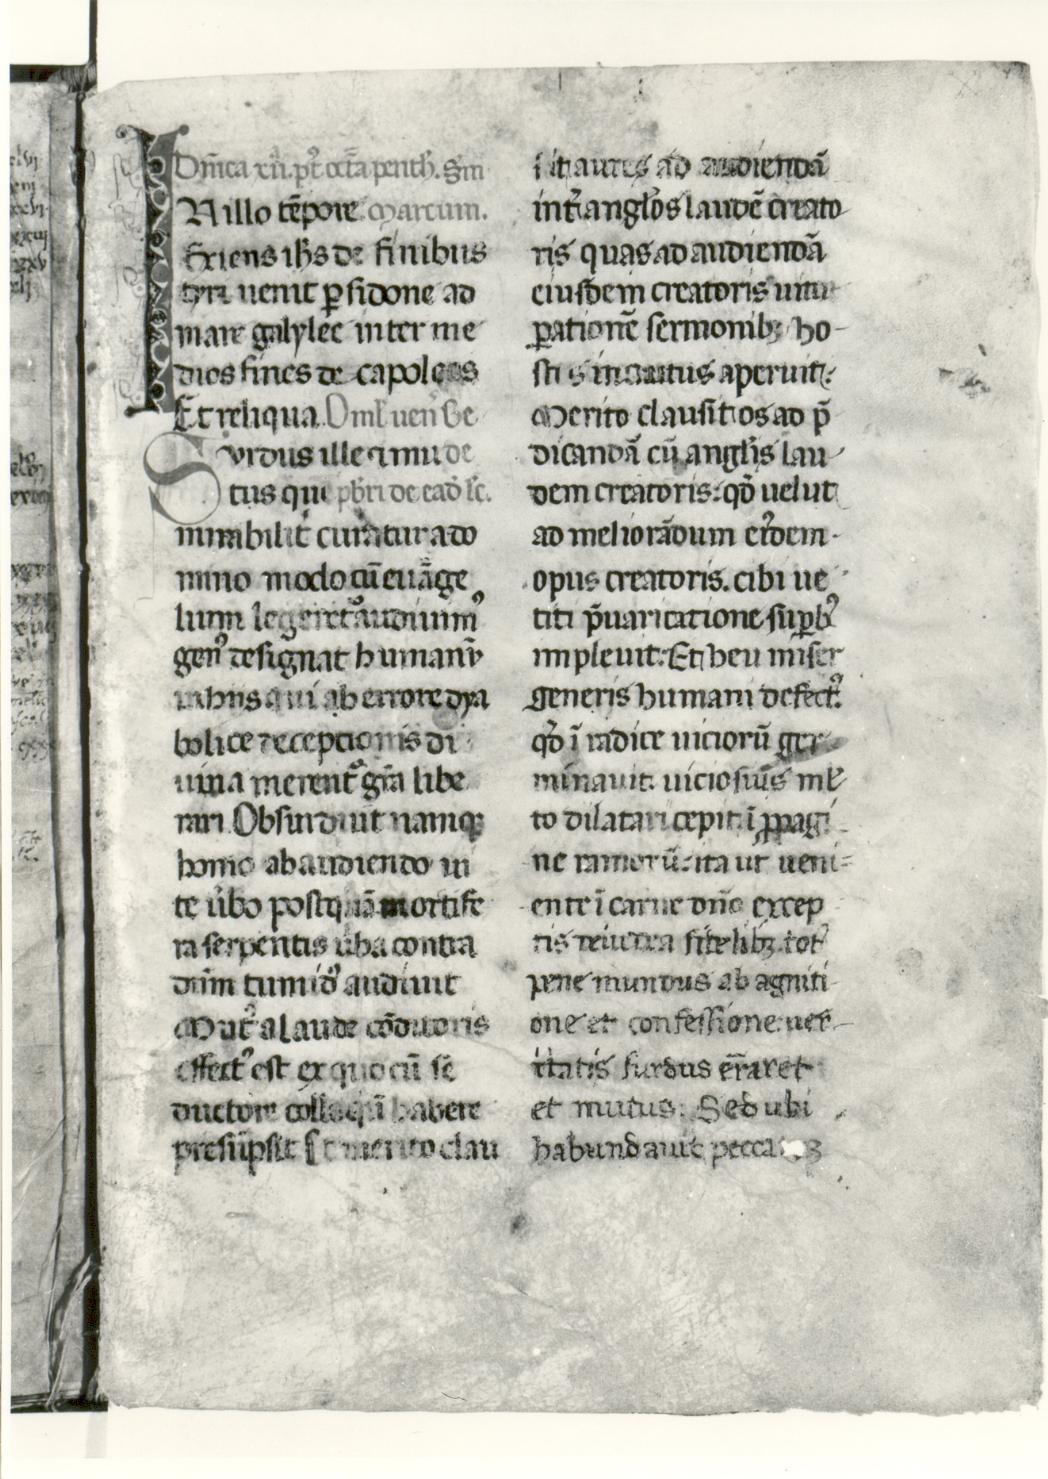 Dn̄ica xii. pꝰt oct̄a penth̄. Sm̄
IN illo tēpore marcum.
Exiens ihs̄ de finibus
tyri uenit ꝑ sidone ad
mare galylee inter me
dios fines decapoleos
Et reliqua. Oml̄ uen̄ Be
Surdus ille ⁊ mu de
tus qui pbr̄i de ead̄ lc̄.
mirabilit̄ curatur a do
mino modo cū euāge
lium legeret᷑ audiuimꝰ
genꝰ designat humanū
in hiis qui ab errore dya
bolice deceptionis di
uina merent᷑ gr̄a libe
rari. Obsurduit namqꝫ
homo ab audiendo ui
te ūbo postquā mortife
ra serpentis ūba contra
dūm tumidꝰ audiuit
Mutꝰ a laude cōditoris
effectꝰ est ex quo cū se
ductore colloquī habere
presūpsit Et merito clau
sit aures ad audiendā
int̄ angl̄os laudē creato
ris quas ad audiendā
eiusdem creatoris uitu
ꝑationē sermonibꝫ ho-
stis incautus aperuit.
Merito clausit os ad p̄
dicandā cū angl̄is lau
dem creatoris. qd̄ uelut
ad meliorādum eīdem
opus creatoris. cibi ue
titi p̄uaricatione suꝑbꝰ
impleuit. Et heu miser
generis humani defectꝰ.
qd̄ ī radice uiciorū ger
minauit. uiciosius ml̄
to dilatari cepit ī ꝓpagi
ne ramorū. ita ut ueni-
ente ī carne dn̄o excep
tis iudea fidelibꝫ totꝰ
pene mundus ab agniti
one et confessione ueˉ-
ritatis surdus erraret
et mutus. Sed ubi
habundauit pecca